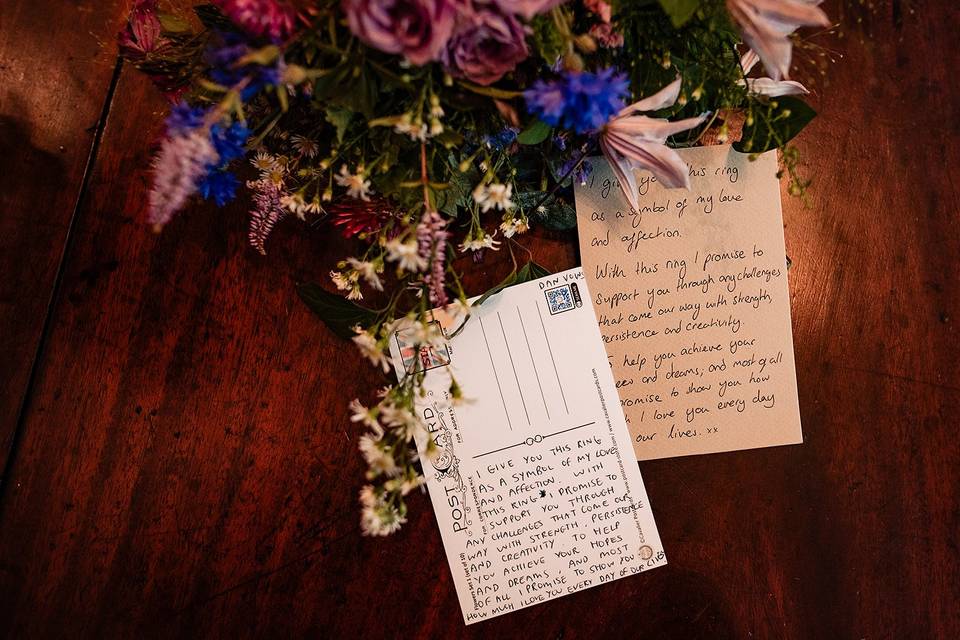 I give you this ring
as a symbol of my love
and affection.
With this ring I promise to
support you through any challenges
that come our way with strength,
persistence and creativity.
help you achieve your
and dreams, and most of all
promise to show you how
I love you every day
our lives. xx
DAN VOWS
POST CARD
FOR CORRESPONDENCE
FOR ADDRESS
I GIVE YOU THIS RING
AS A SYMBOL OF MY LOVE
AND AFFECTION. WITH
THIS RING I PROMISE TO
SUPPORT YOU THROUGH
ANY CHALLENGES THAT COME OUR
WAY WITH STRENGTH, PERSISTENCE
AND CREATIVITY. TO HELP
YOU ACHIEVE YOUR HOPES
AND DREAMS AND MOST
OF ALL I PROMISE TO SHOW YOU
HOW MUCH I LOVE YOU EVERY DAY OF OUR LIVES